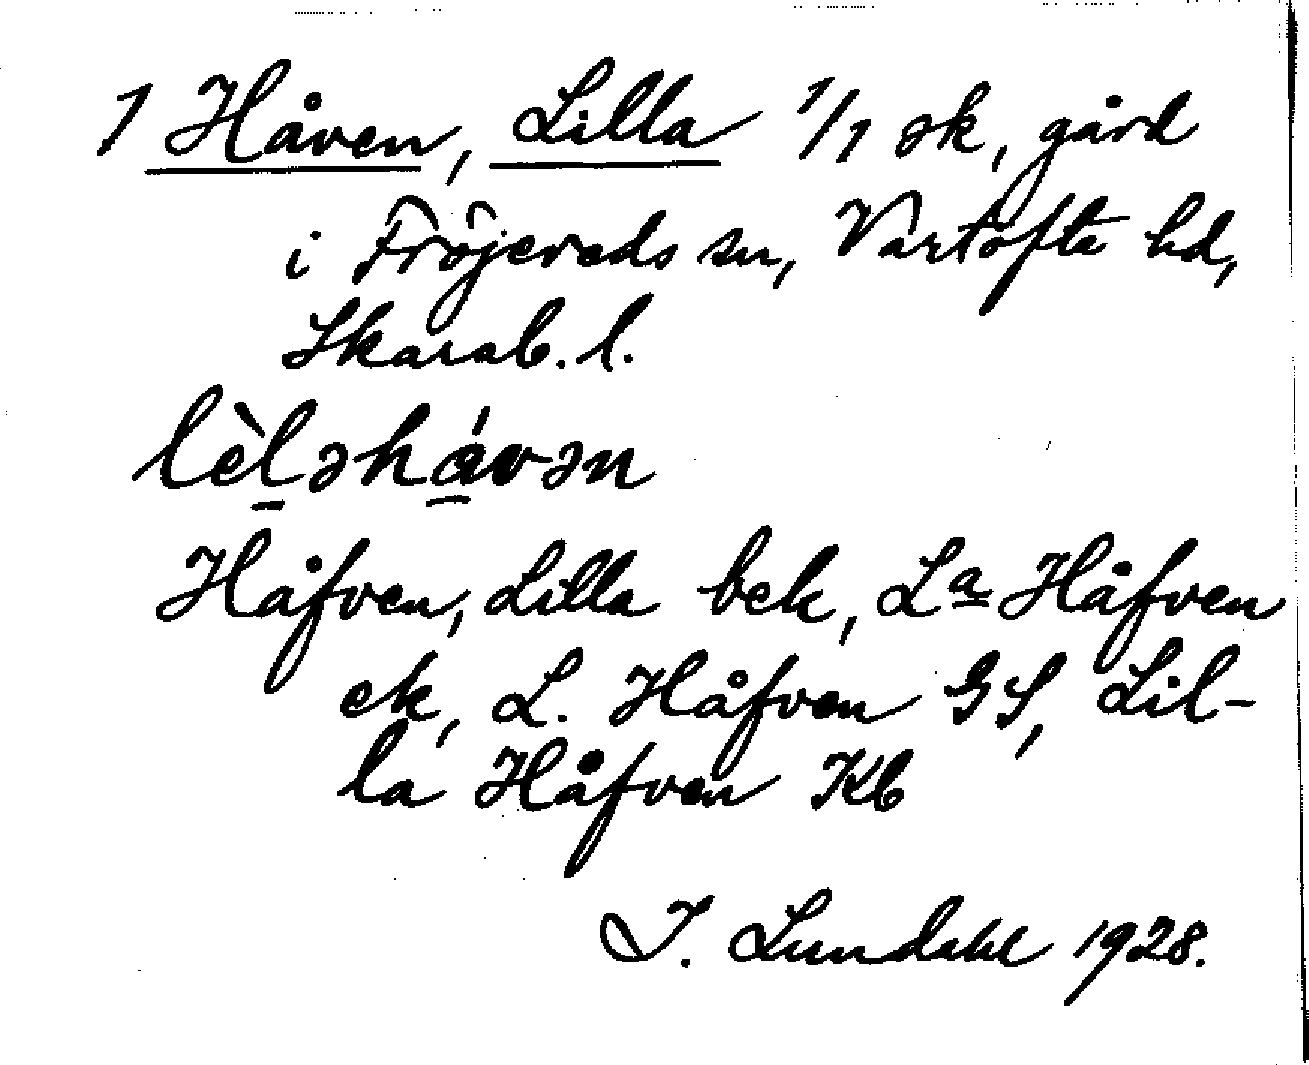 1 Håven, Lilla 1/1 sk, gård
i Fröjereds sn, Vartofta hd,
Skarab. l.
lèləhávən
Håfven, Lilla bek, Lª Håfven
ek, L. Håfven GS, Lil-
la Håfven Kb
I. Lundahl 1928.